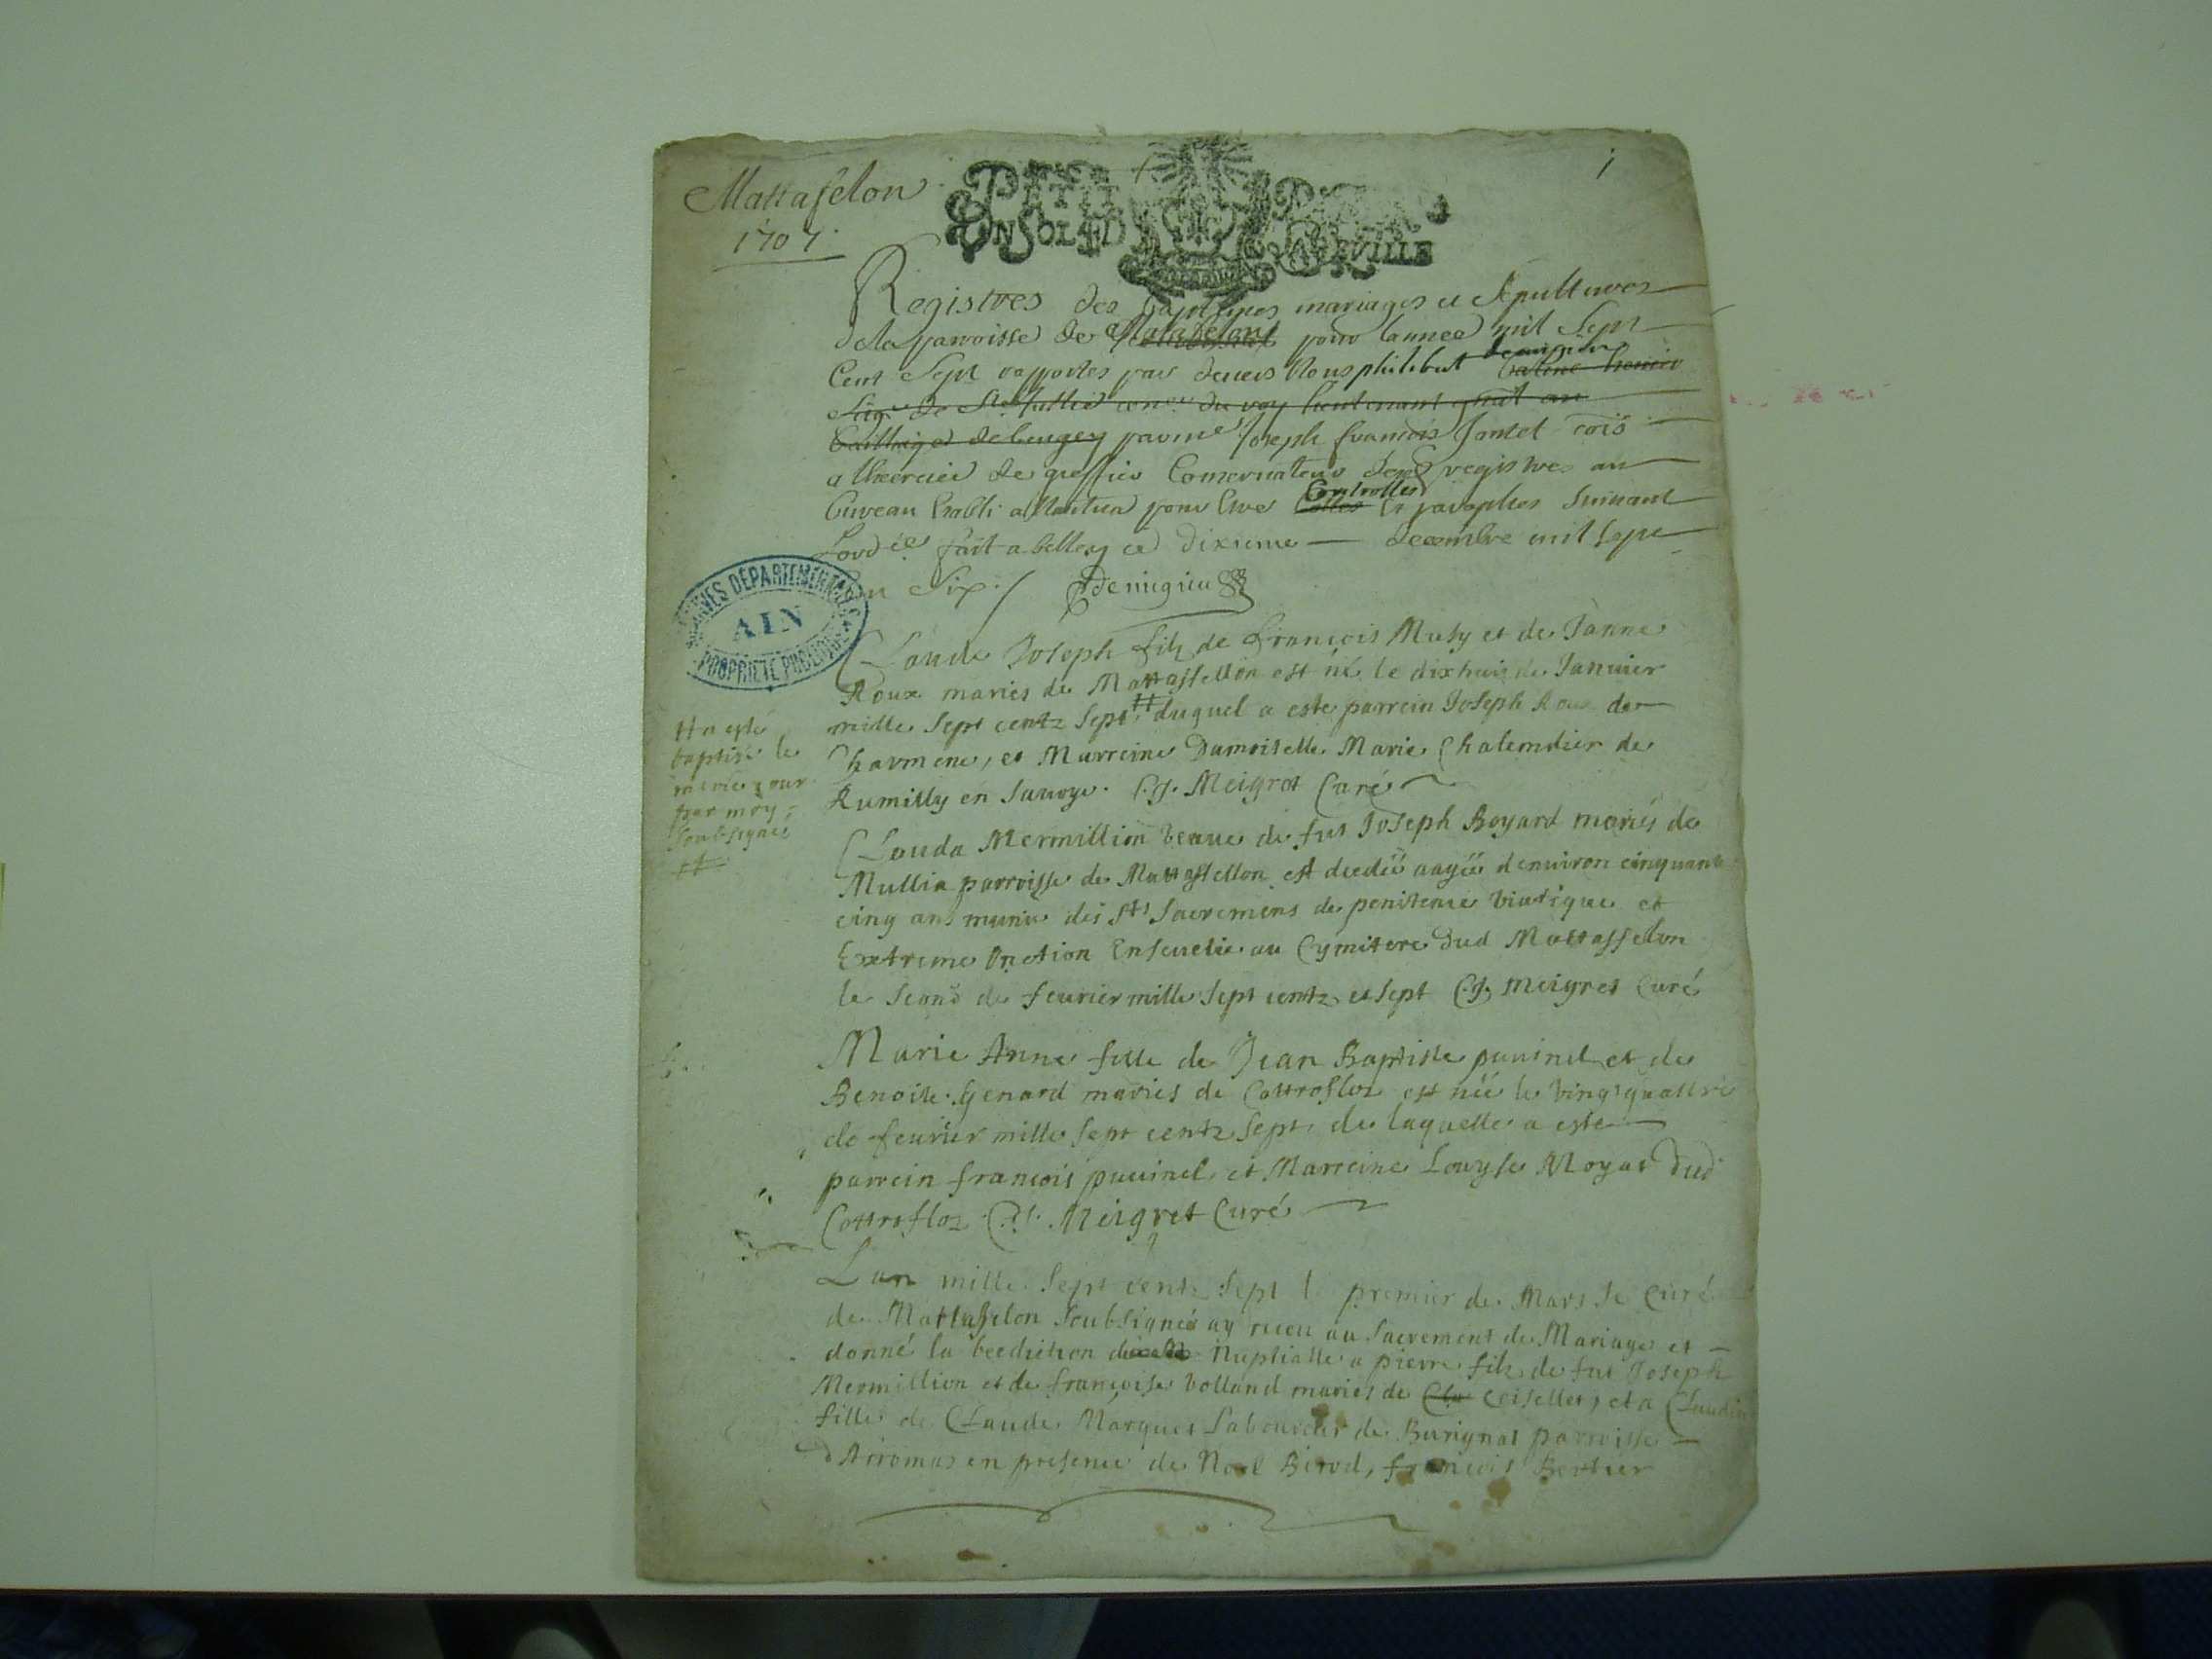 Mattafelon
1707
1
PETIT PAPIER
UN SOL 4 D LA FEVILLE
Registres des baptesmes mariages et sepultures
de la parroisse de Matafelon pour lannee mil Sept
Cent Sept raportes par devers Nous philibert demigieu
Joseph françois Jantet cois
a lexercice de greffier Conservateur desd registres au
bureau Etabli a Nantua pour Etre Controlles et paraphes Suivant
Lord ce fait a belley ce dixieme decembre mil Sept
Cen Six ./ Demigieu
ARCHIVES DÉPARTEMENTALES
AIN
PROPRIÉTÉ PUBLIQUE
Claude Joseph filz de François Muty et de Janne
Roux mariés de Mattaffellon est né le dixhuit de Januier
mille sept centz sept # duquel a este parrein Joseph Roux de
Charmene, et Marreine Damoiselle Marie Chalendier de
Rumilly en Sauoye. C. J. Meigret Curé
# a esté
baptisé le
mesme jour
par moy
soubsigné
#
Clauda Mermillion veuue de fut Joseph Boyard mariés de
Mullia parroisse de Mattaffellon est decedée aagée denuiron cinquante
cinq ans munie des Sts Sacremens de penitence viatique et
Extreme Onction Enseuelie au Cymitere dud Mattaffelon
le Second de feurier mille sept centz et sept C. J. Meigret Curé
Marie Anne fille de Jean Baptiste puuinel et de
Benoite Genard mariés de Cottrofloz est née le vingt quattre
de feurier mille sept centz sept, de laquelle a esté
parrein françois puuinel, et Marreine Louyse Moyat dud
Cottrofloz C. J. Meigret Curé
Lan mille sept centz sept le premier de Mars Je Curé
de Mattafelon soubsigné ay receu au Sacrement de Mariage et
donné la beediction Nuptialle a pierre filz de fut Joseph
Mermillion et de françoise bolland mariés de Coiselles, et a Claudine
fille de Claude Marques Laboureur de Burignat parroisse
dArromas en presence de Noel Birod, françois Bertier